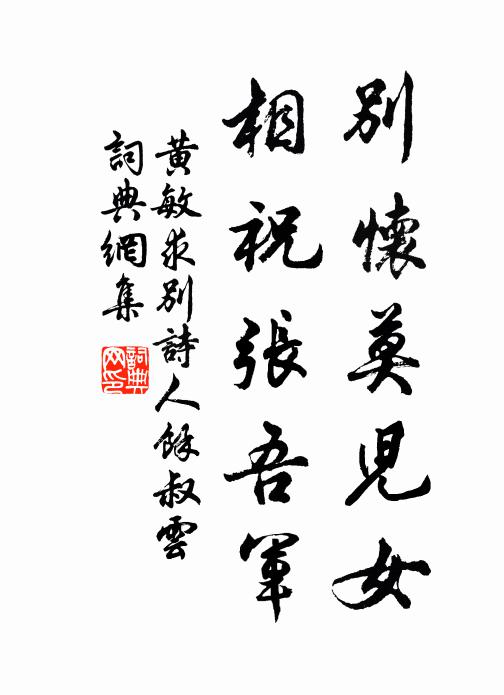 別懷莫兒女
相祝張吾軍
黃敏求別詩人餘叔雲
詞典網集
詞典
网印